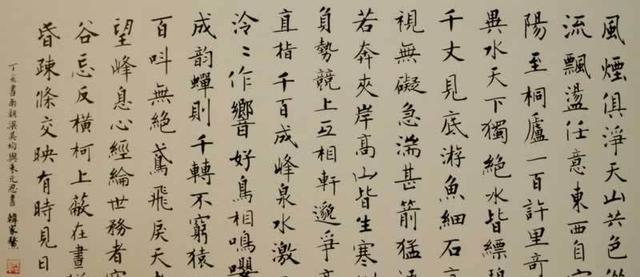 風煙俱淨天山共色從
流飄盪任意東西自富
陽至桐廬一百許里奇
異水天下獨絕水皆縹
千丈見底游魚細石
視無礙急湍甚箭猛
若奔夾岸高山皆生寒
負勢競上互相軒邈爭高
直指千百成峰泉水激
泠〻作響好鳥相鳴嚶
成韻蟬則千轉不窮猿
百叫無絕鳶飛戾天
望峰息心經綸世務者
谷忘反橫柯上蔽在晝
昏疎條交映有時見日
丁亥書南朝梁吳均與朱元思書 韓家鰲